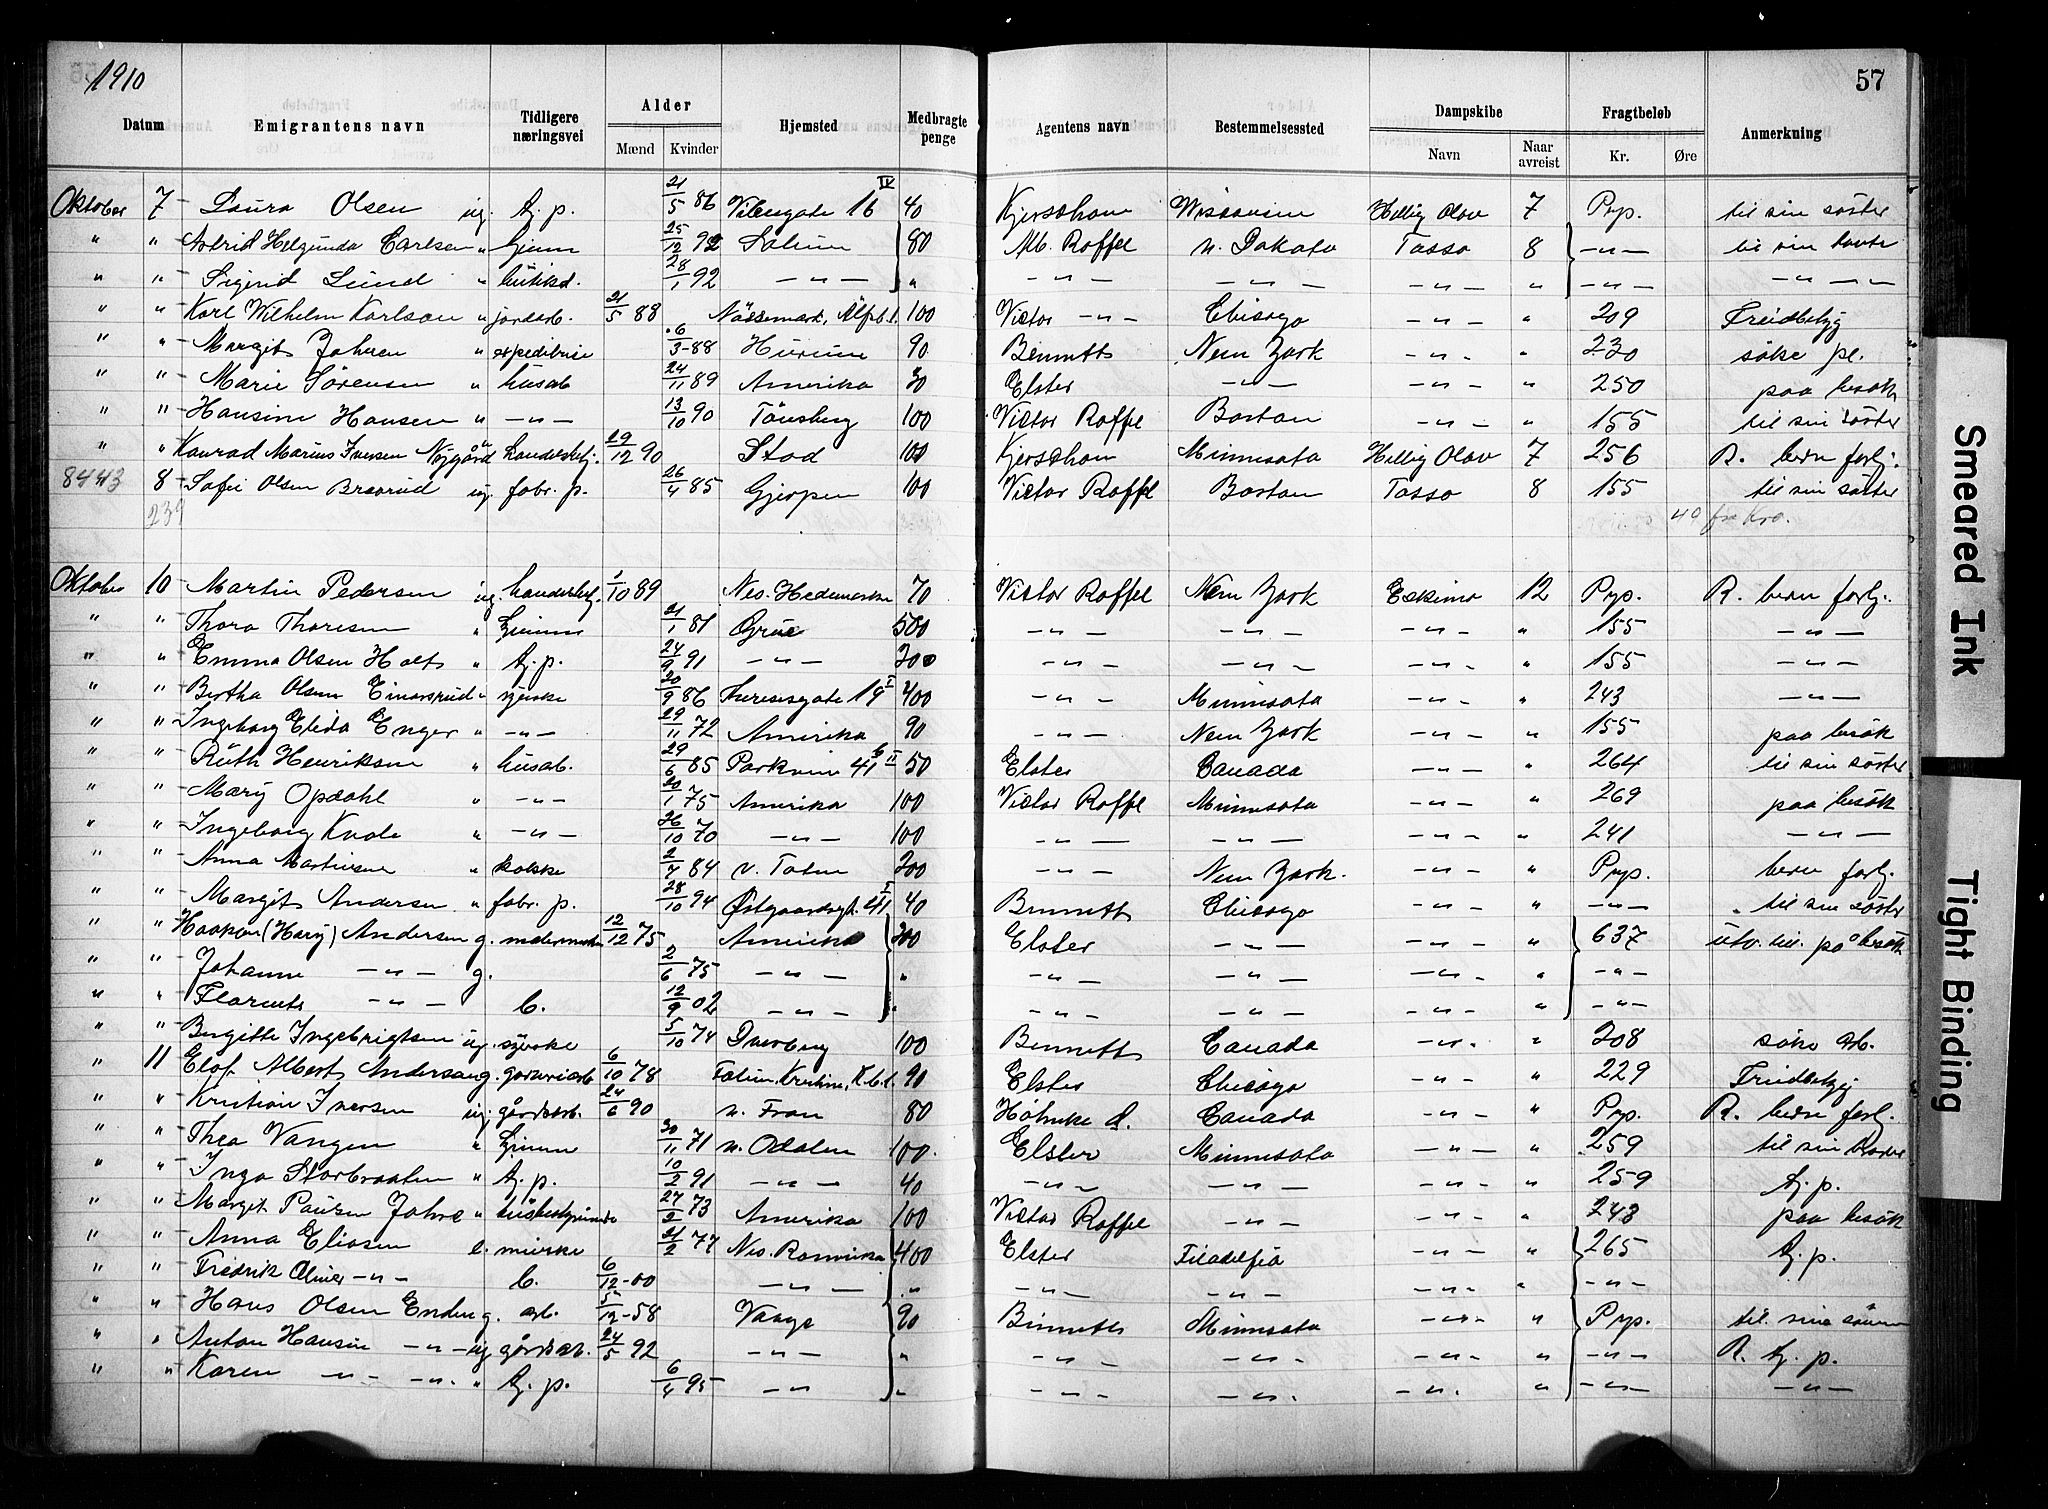 1910
57
Datum Emigrantens navn Tidligere næringsvei Alder Mænd Kvinder Hjemsted Medbragte penge Agentens navn Bestemmelsessted Dampskibe Navn Naar avreist Fragtbeløb Kr. Øre Anmerkning
Oktober 7 Laura Olsen ug. tj. p. 21/5 86 Vibesgate 16 IV 40 Kjerschow Wisconsin Hellig Olav 7 Pryp. til sin söster
" " Astrid Helgunda Carlsen " hjem 25/12 92 Solum 80 Alb. Roffel n. Dakota Tasso 8 -"- til sin tante
" " Sigrid Lund " butikd. 28/1 92 -"- " -"- -"- -"- " -"- -"-
" " Karl Wilhelm Karlson " jordarb. 21/5 88 Nössemark, Älfsb. l. 100 Victor -"- Chicago -"- " 209 Fribilletg
" " Margit Johnsen " expeditrise 6/3-88 Hurum 90 Bennetts New York -"- " 230 söke pl.
" " Marie Sörensen " husarb 24/11 89 Amerika 30 Elster -"- -"- " 250 paa besök
" " Hansine Hansen " -"- 13/10 90 Tönsberg 100 Victor Roffel Boston -"- " 155 til sin söster
" " Konrad Marius Iversen Nygård " handelsbetj. 29/12 90 Stod 100 Kjerschow Minnesota Hellig Olav 7 256 R. bedre fortj.
8443 8 Sofie Olsen Braarud ug. fabr. p. 26/4 85 Gjerpen 100 Victor Roffel Boston Tasso 8 155 til sin söster
239 40 fra Kra.
Oktober 10 Martin Pedersen ug. handelsbetj. 1/10 89 Nes. Hedemarken 70 Victor Roffel New York Eskimo 12 Pryp. R. bedre fortj.
" " Thora Thoresen " hjemme 21/1 81 Grue 500 -"- -"- -"- " 155 -"-
" " Emma Olsen Holt " tj. p. 24/9 91 -"- 300 -"- -"- -"- " 155 -"-
" " Bertha Olsen Einarsrud " syerske 20/9 86 Theresesgate 19 I 400 -"- Minnesota -"- " 243 -"-
" " Ingeborg Elida Enger " -"- 29/11 72 Amerika 90 -"- New York -"- " 155 paa besök
" " Ruth Henriksen " husarb. 29/6 85 Parkveien 41 b II 50 Elster Canada -"- " 264 til sin söster
" " Mary Opdahl " -"- 20/1 75 Amerika 100 Victor Roffel Minnesota -"- " 269 paa besök
" " Ingeborg Kvale " -"- 26/10 70 -"- 100 -"- -"- -"- " 241 -"-
" " Anna Martinsen " kokke 2/7 84 v. Toten 200 -"- New York. -"- " Pryp. bedre fortj.
" " Margit Andersen " fabr. p. 28/10 94 Østgaardsgt. 41 I 40 Bennetts Chicago -"- " -"- til sin söster
" " Haakon (Harry) Andersen g. 12/12 75 Amerika 300 Elster -"- -"- " 637 utv. till. på besök
" " Johanne -"- g. 2/6 75 -"- " -"- -"- -"- " -"-
" " Florents -"- b. 12/9 02 -"- " -"- -"- " -"-
" " Birgitte Ingebrigtsen ug. syerske 5/10 74 Dverberg 100 Bennetts Canada -"- " 208 söke arb.
" 11 Elof Albert Anderson g. garveriarb 6/10 78 90 Elster Chicago -"- " 229 Fribilletg
" " Kristian Iversen ug. gårdsarb. 24/6 90 n. Fron 80 Höhnke Canada -"- " Pryp. R. bedre fortj.
" " Thea Vangen " hjemme 30/11 71 n. Odalen 100. Elster Minnesota -"- " 259 til sin broder
" " Inga Storbraaten " tj. p. 10/2 91 -"- 40 -"- -"- -"- " 259 tj. p.
" " Margit Paulsen Johre " husbestyrinde 27/2 73 Amerika 100 Victor Roffel -"- -"- " 243 paa besök
" " Anna Eliasen e. 21/2 77 Nes. Romerike 400 Elster Filadelfia -"- " 265 tj. p.
" " Fredrik Oliver -"- b. 6/12-00 -"- " -"- -"- -"- " -"-
" " Hans Olsen Enden g. arb. 5/12-58 Vang 90 Bennetts Minnesota -"- " Pryp. til sine sönner
" " Anton Hansen -"- ug gårdsarb. 24/5 92 -"- " -"- -"- -"- " -"- R. tj. p.
" " Karen -"- -"- " tj. p. 6/4 95 -"- " -"- -"- -"- " -"- -"-
Smeared Ink
Tight Binding